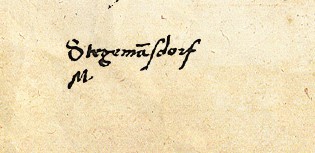 Stegemāsdorf
M